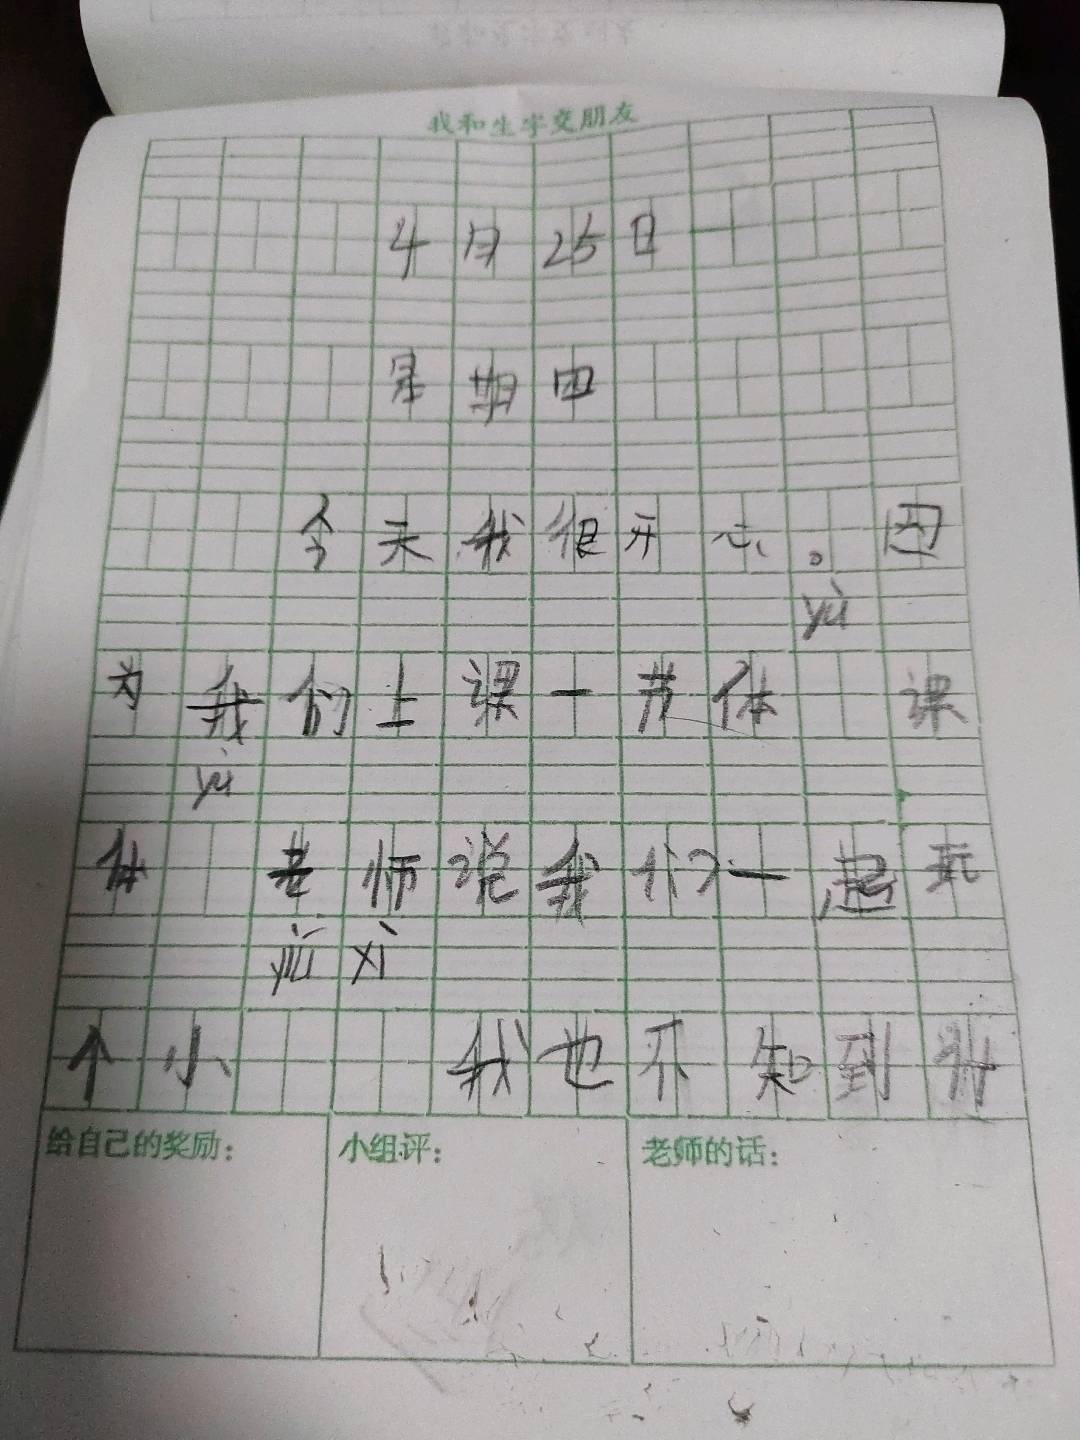 我和生字交朋友
4月25日
星期四
今天我很开心。因
yù
为我们上课一节体 课
yù
体 老师说我们一起玩
yóu xì
个小 我也不知到
给自己的奖励：
小组评：
老师的话：